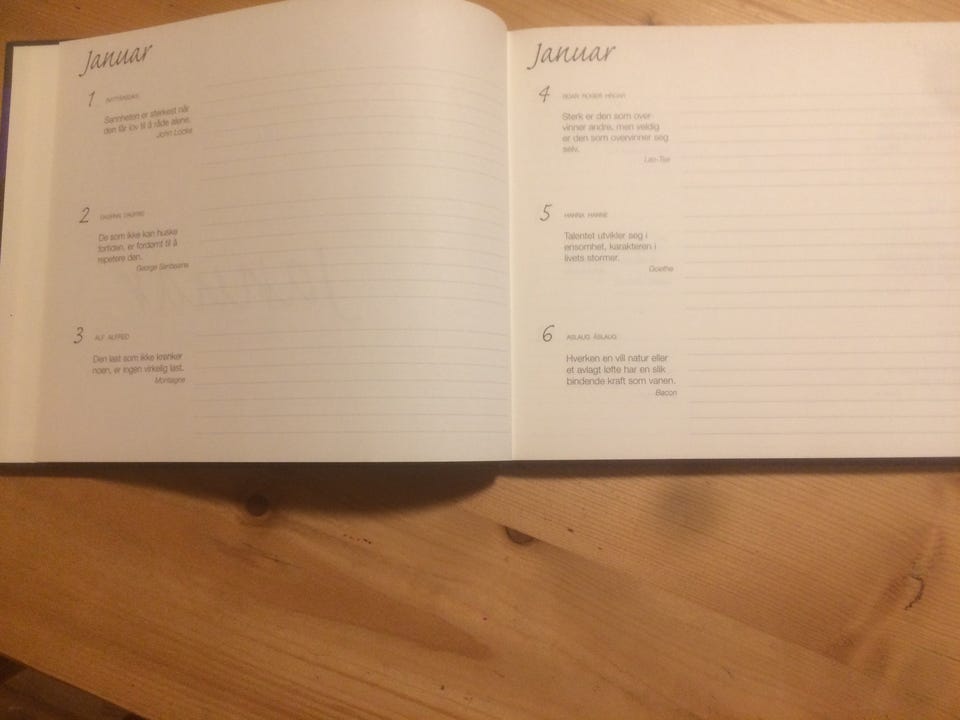 Januar
1 NYTTÅRSDAG
Sannheten er sterkest når
den får lov til å råde alene.
John Locke
2 DAGFINN DAGFRID
De som ikke kan huske
fortiden, er fordømt til å
repetere den.
George Santayana
3 ALF ALFRED
Den last som ikke krenker
noen, er ingen virkelig last.
Montaigne
Januar
4 ROAR ROGER HÅGAR
Sterk er den som over-
vinner andre, men veldig
er den som overvinner seg
selv.
Lao-Tse
5 HANNA HANNE
Talentet utvikler seg i
ensomhet, karakteren i
livets stormer.
Goethe
6 ASLAUG ÅSLAUG
Hverken en vill natur eller
et avlagt løfte har en slik
bindende kraft som vanen.
Bacon